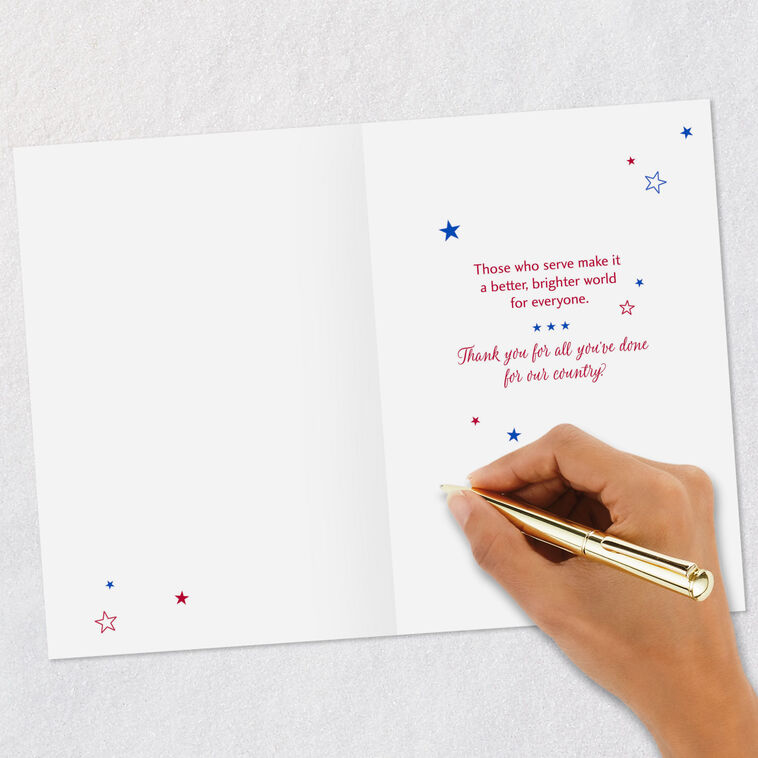 Those who serve make it
a better, brighter world
for everyone.
Thank you for all you've done
for our country.